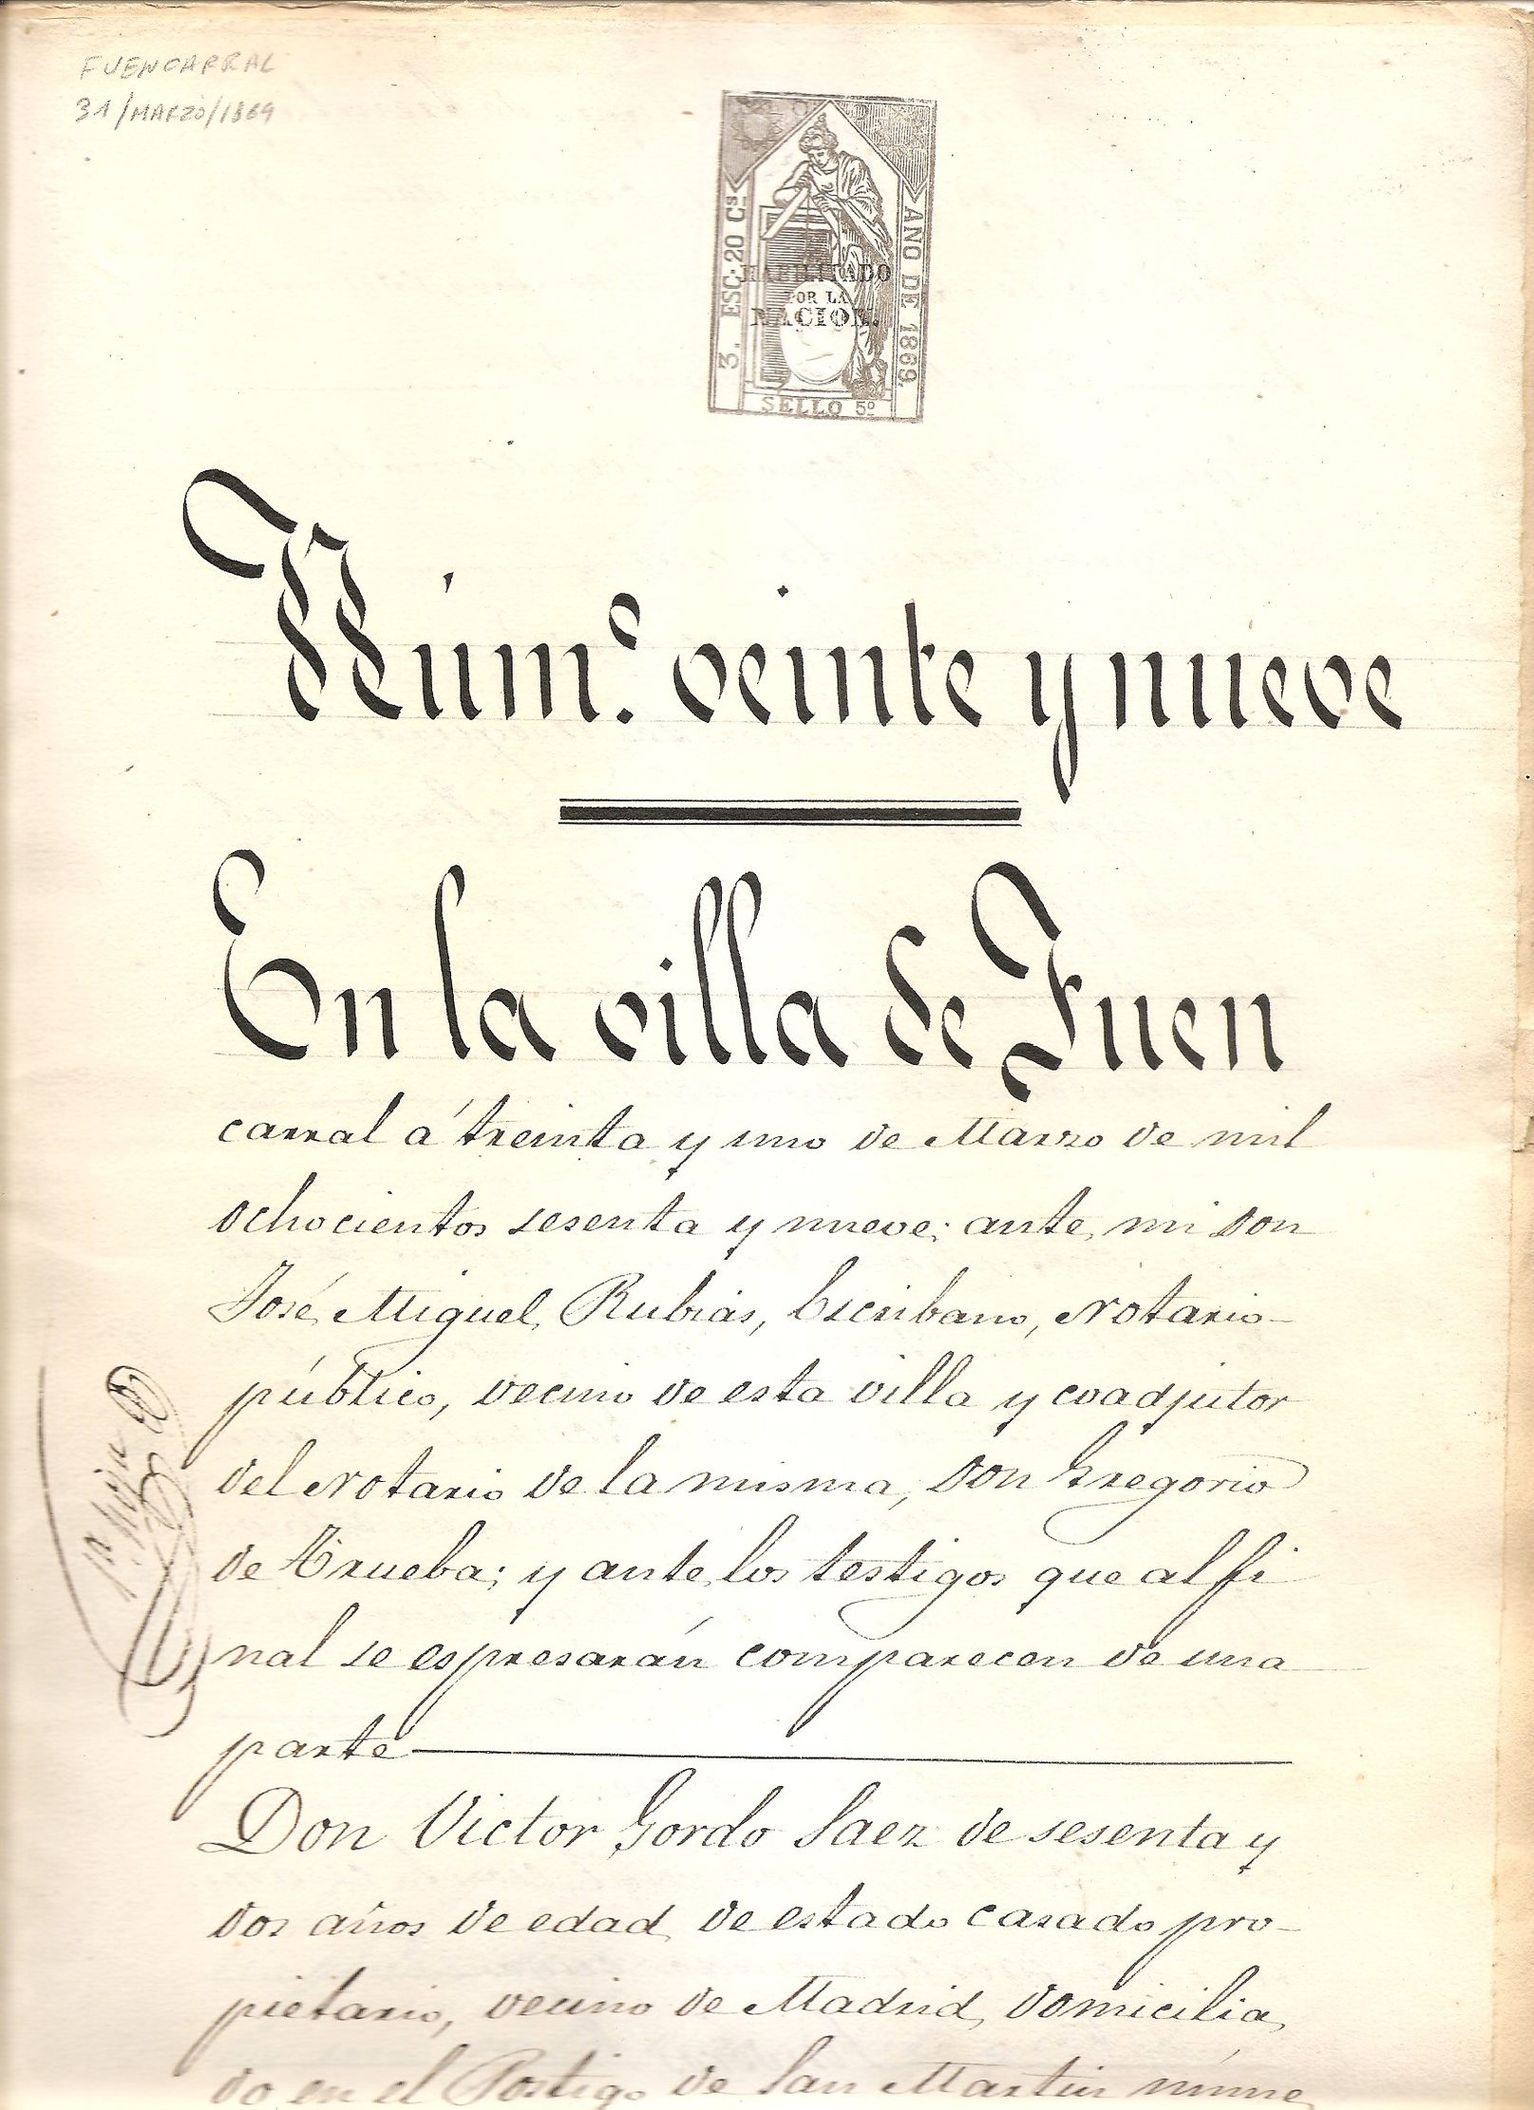 FUENCARRAL
31/MARZO/1869
3. ESC. 20 Cs
AÑO DE 1869.
HABILITADO
POR LA
NACION.
SELLO 5º
Núm.º veinte y nueve
En la villa de Fuen
carral á treinta y uno de Marzo de mil
ochocientos sesenta y nueve; ante mi don
José Miguel Rubias, Escribano, Notario
público, vecino de esta villa y coadjutor
del Notario de la misma, don Gregorio
de Trueba; y ante los testigos que al fi
nal se espresarán comparecen de una
parte
Don Victor Gordo Saez de sesenta y
dos años de edad de estado casado pro-
pietario, vecino de Madrid, domicilia
do en el Postigo de San Martin núme
1ª Hoja